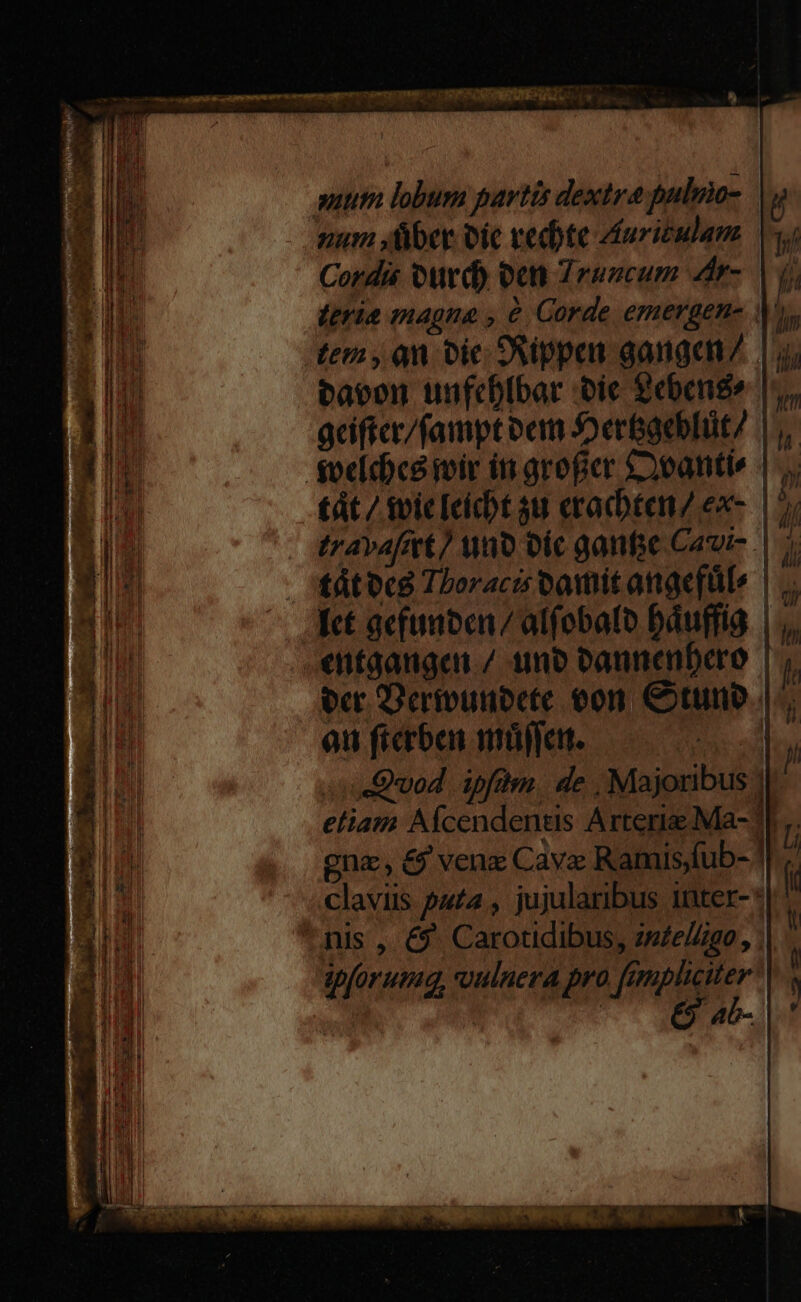 mum lobum partis dextræ pulmo-
num, über die rechte Auriculam
Cordis durch den Truncum Ar-
teriæ magnæ, è Corde emergen-
tem, an die Rippen gangen/
davon unfehlbar die Lebens-
geister/sampt dem Hertzgeblüt/
welches wir in großer Qvanti-
tät/ wie leicht zu erachten/ ex-
travasirt/ und die gantze Cavi-
tät des Thoracis damit angefül-
let gefunden/ alsobald häuffig
entgangen / und dannenhero
der Verwundete von Stund
an sterben müssen.
Qvod ipsum de Majoribus
etiam Ascendentis Arteriæ Ma-
gnæ, & venæ Cavæ Ramis, sub-
claviis puta, jujularibus inter-
nis, & Carotidibus, intelligo,
ipsorumq, vulnera pro simpliciter
& ab-